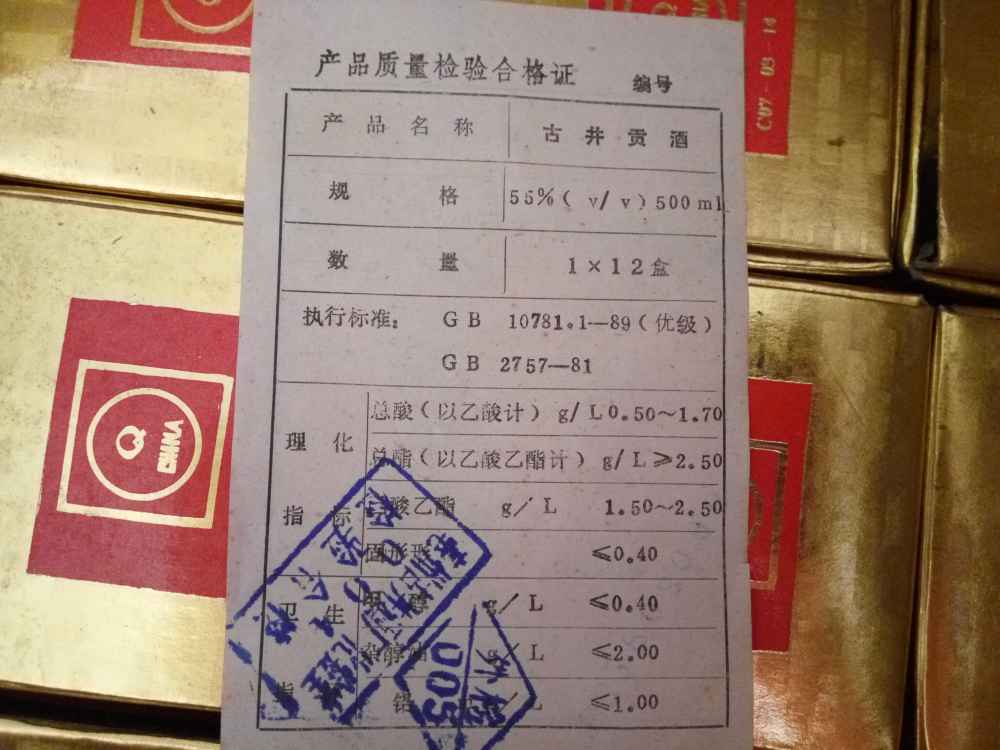 C07-03-14
产品质量检验合格证 编号
产品名称 古井贡酒
规格 55%( v/ v)500 ml
数量 1×12盒
执行标准: GB 10781.1—89(优级)
GB 2757—81
理化
指标
总酸(以乙酸计) g/L 0.50～1.70
总酯(以乙酸乙酯计) g/L ≥2.50
酸乙酯 g/L 1.50～2.50
固形 ≤0.40
卫生
醇 g/L ≤0.40
杂醇油 g/L ≤2.00
铅 L ≤1.00
Q
CHINA
005